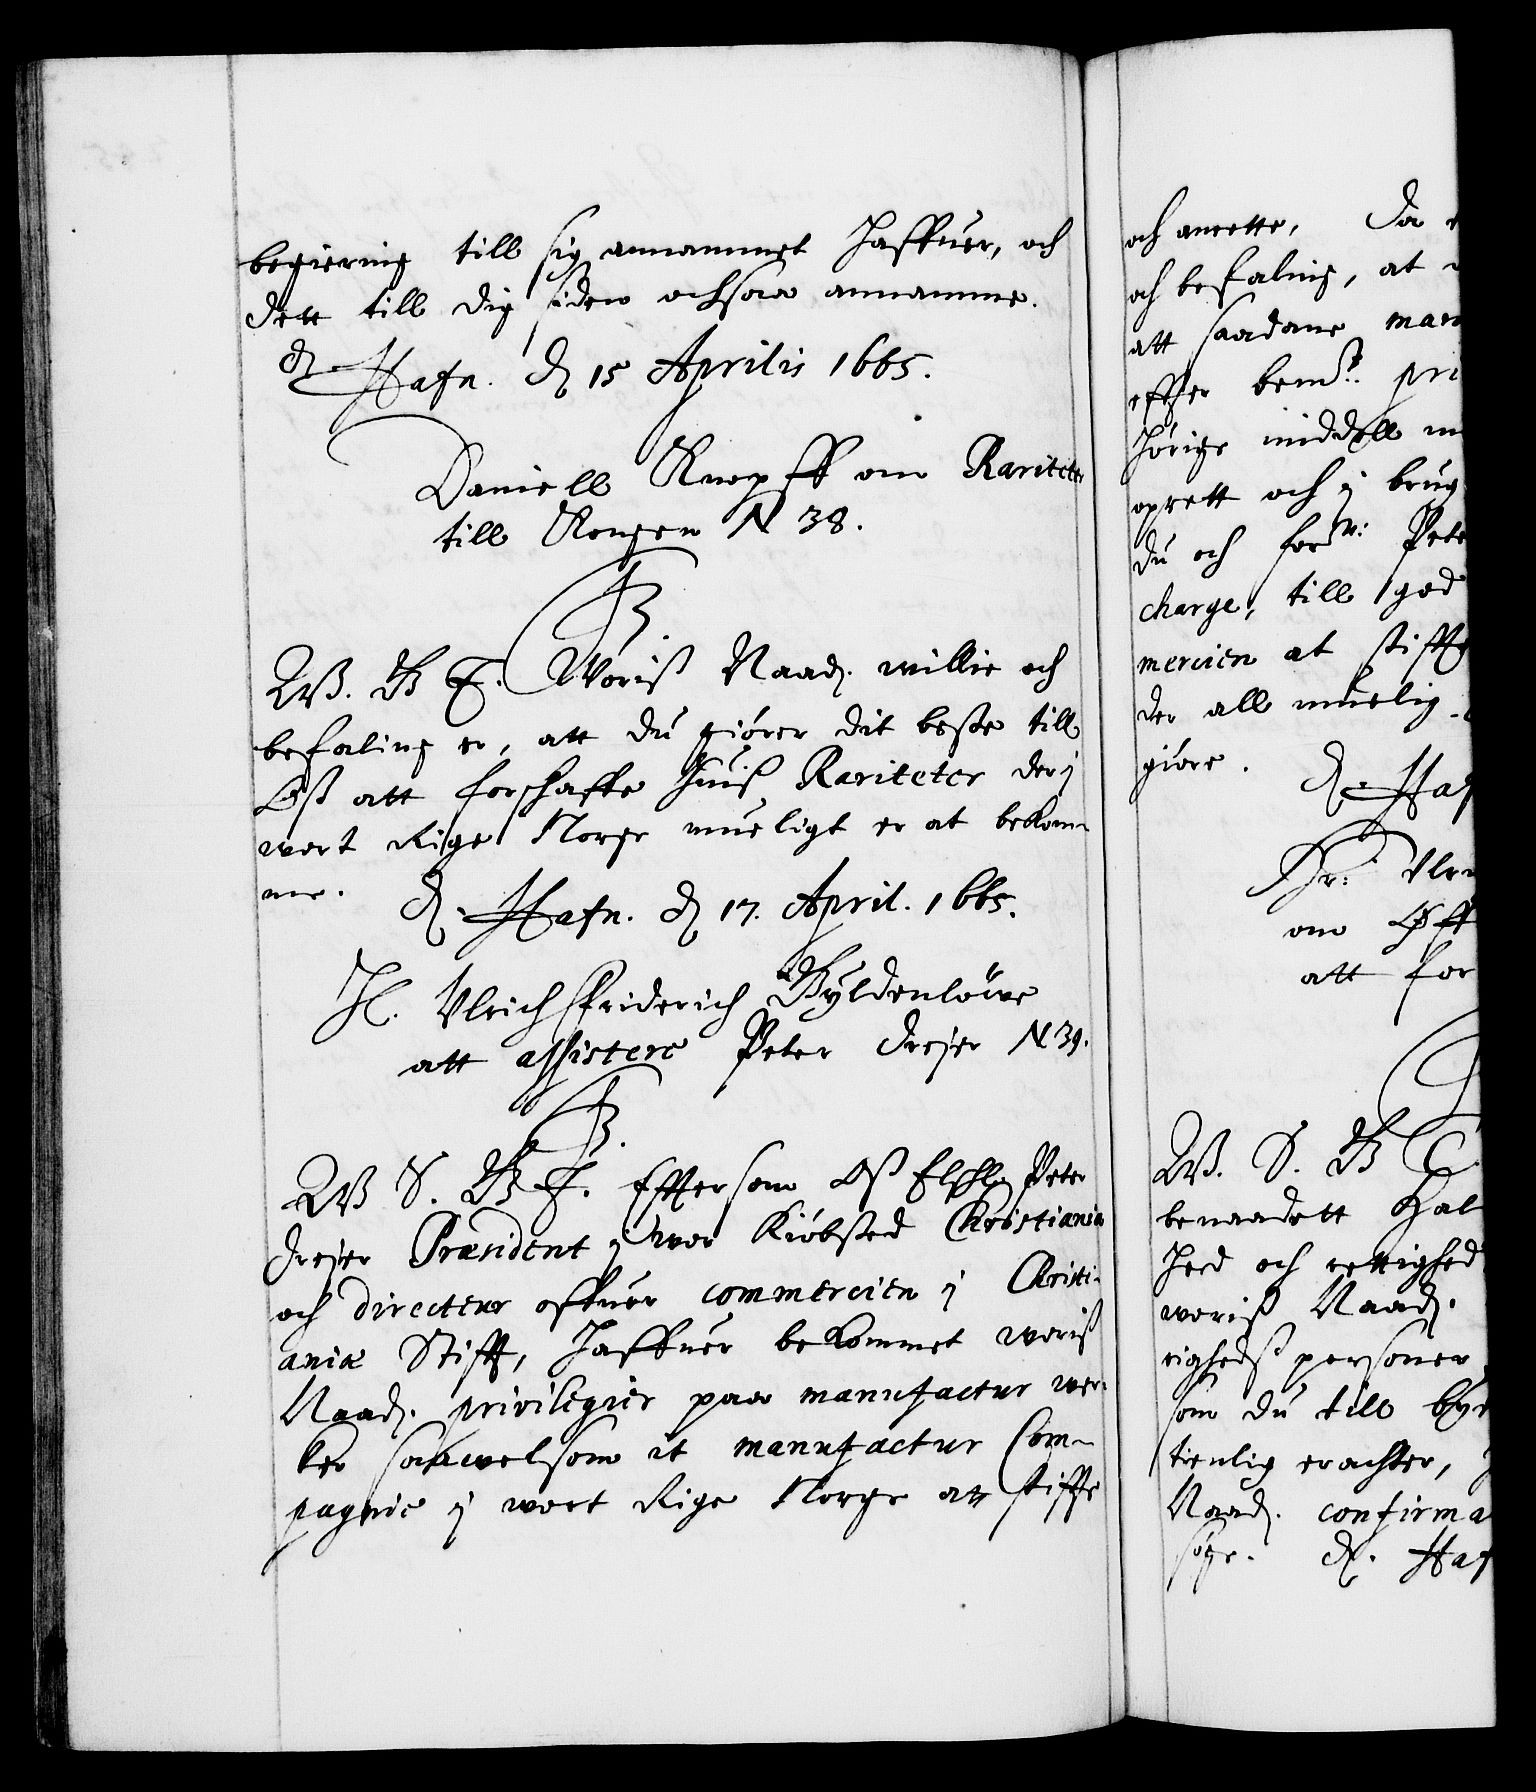 begiering till sig annammet haffuer, och
dett till dig siden ochsaa annamme.
d. Hafn. d 15 Aprilis 1665.
Daniell Knopff om Rariteter
till Kongen N 38.
F3.
W. G. T. Woriß Naad. willie och
befaling er, att du giörer dit beste till
Oß att forschaffe huiß Rariteter der j
wort Rige Norge mueligt er at bekom-
me. d. Hafn. d 17. April. 1665.
H. Vlrich Friderich Gyldenlöwe
att assistere Peter Dreyer N 39.
F3.
W S. G T. Efftersom Oß Elschl. Peter
Dreyer Præsident j wor Kiöbsted Christiania
och directeur offuer commercien j Christi-
aniæ Stifft, haffuer bekommet woriß
Naad. privilegier paa manufactur wer-
ker saawelsom it manufactur Com-
pagnie j wort Rige Norge at stiffte
och anrette, Da
och befaling, at
att saadane man
effter bemte. pri
hörige middell
oprett och j brug
du och for Pete
charge, till god
mercien at stiffte
der all muelig
giöre. d. Haf
Hr: Vlri
om
att for
W. S. G
benaadett Hal
hed och rettighed
woriß Naad.
righedß personer
som du till by
tienlig erachter,
Naad. confirma
söge. d. Haf